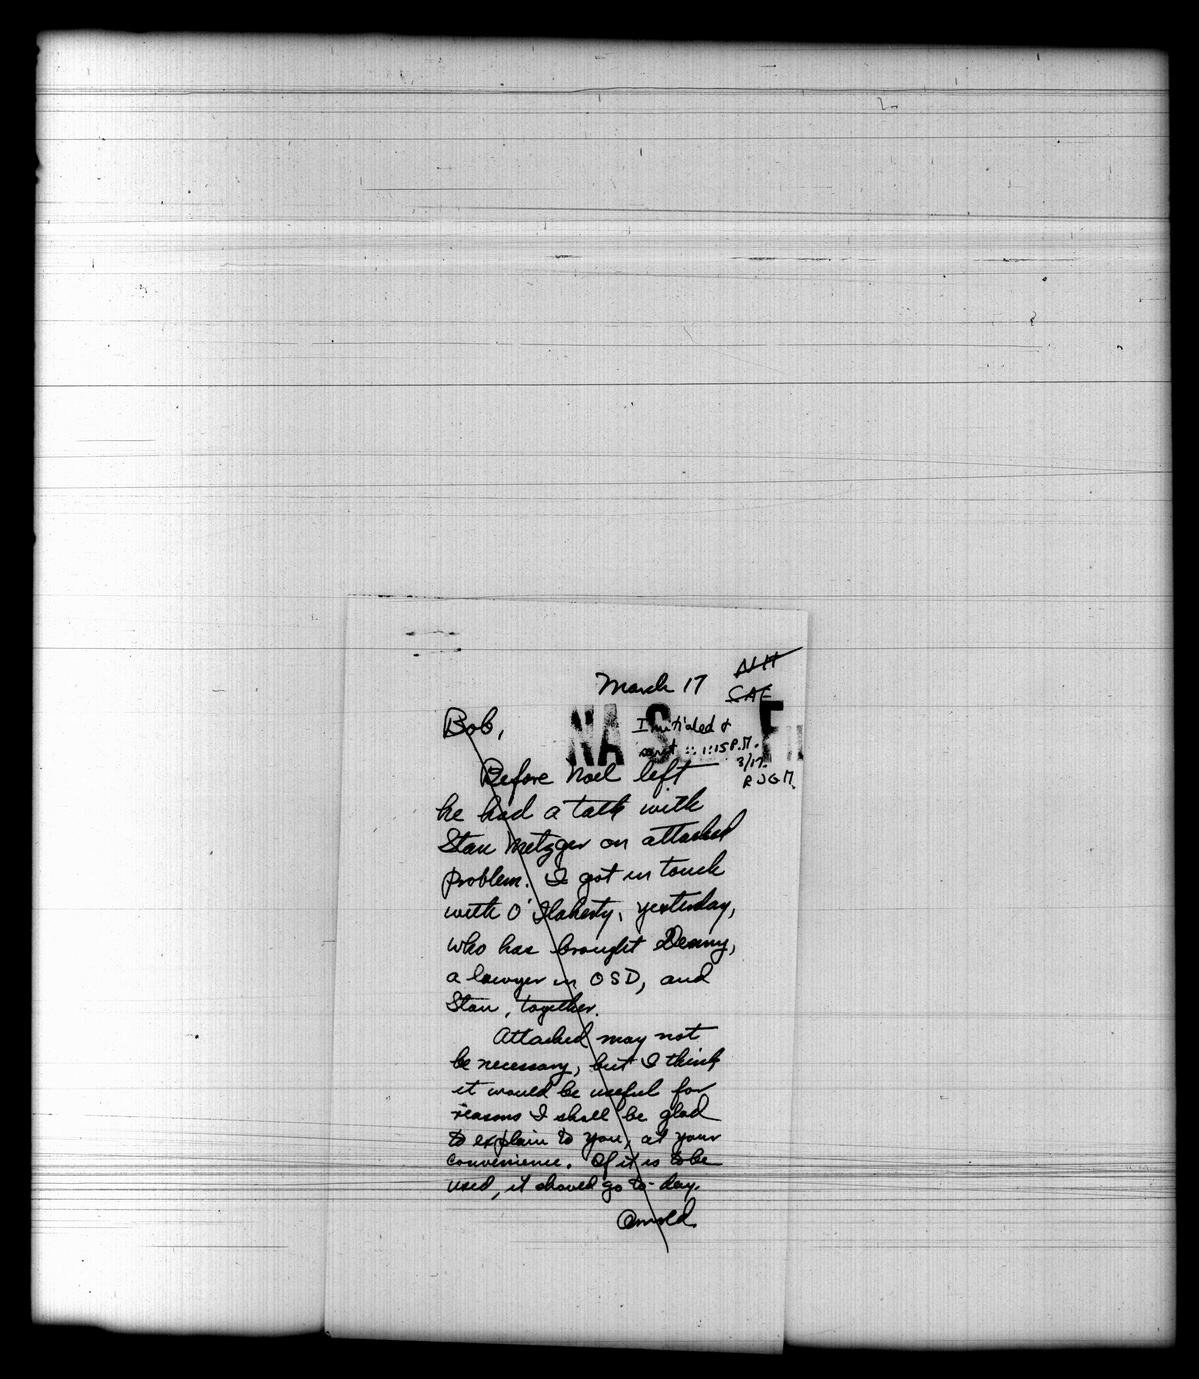 March 17
NH
SAE
Bob,
NA S F
I initialed &
sent 1:15 P.M.
3/17.
RJGM
Before Noel left
he had a talk with
Stan Metzger on attached
problem. I got in touch
with O'Flaherty, yesterday,
who has brought Denny,
a lawyer in OSD, and
Stan, together.
Attached may not
be necessary, but I think
it would be useful for
reasons I shall be glad
to explain to you, at your
convenience. If it is to be
used, it should go to-day.
Arnold